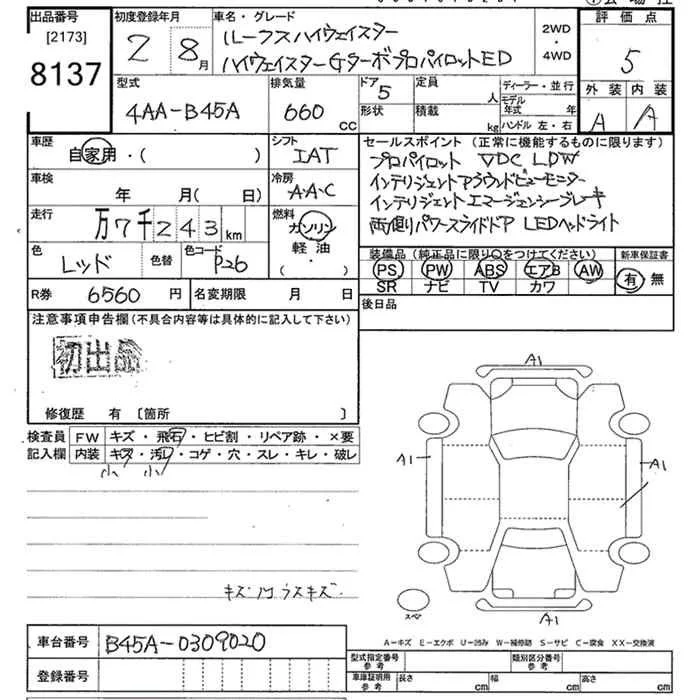 出品番号 初度登録年月 車名・グレード 評価点
[2173]
8137
2 8月
ルークスハイウェイスター
ハイウェイスターGターボプロパイロットED
2WD
・
4WD
5
型式 排気量 ドア 定員 ディーラー・並行 外装 内装
4AA-B45A 660 CC
5 人
形状 積載 kg
モデル年式 年
ハンドル 左・右
A A
車歴 自家用・( )
シフト IAT
車検 年 月(日)
冷房 AAC
走行 万7千243km
燃料 ガソリン
軽・油
・( )
色 レッド 色替 色コード P26
R券 6560円 名変期限 月 日
セールスポイント (正常に機能するものに限ります)
プロパイロット VDC LDW
インテリジェントアラウンドビューモニター
インテリジェントエマージェンシーブレーキ
両側パワースライドドア LEDヘッドライト
装備品(純正品に限り○をつけてください) 新車保証書
PS PW ABS エアB AW 有・無
SR ナビ TV カワ
後日品
注意事項申告欄(不具合内容等は具体的に記入して下さい)
初出品
修復歴 有 [箇所 ]
検査員 FW キズ・飛石・ヒビ割・リペア跡・×要
記入欄 内装 キズ・汚レ・コゲ・穴・スレ・キレ・破レ
小 小
キズ
ウスキズ
A1
A1
A1
A1
スペア
車台番号 B45A-0309020
登録番号
A-キズ E-エクボ U-凹み W-補修跡 S-サビ C-腐食 XX-交換済
型式指定番号 類別区分番号
参考 参考
車庫証明用 長さ cm 幅 cm 高さ cm
参考